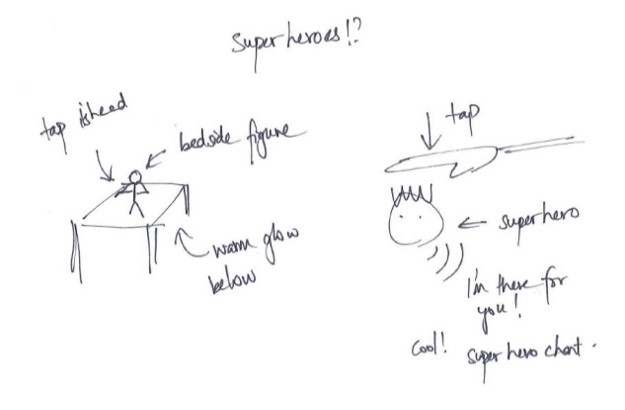 Superheroes!?
tap its head
bedside figure
warm glow
below
tap
superhero
I'm there for
you!
Cool!
Super hero chant.